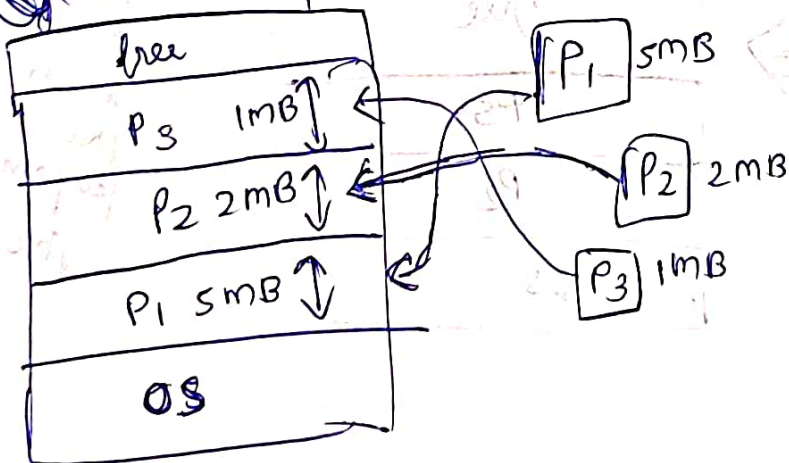 free
P3 1MB
P2 2MB
P1 5MB
OS
P1 5MB
P2 2MB
P3 1MB